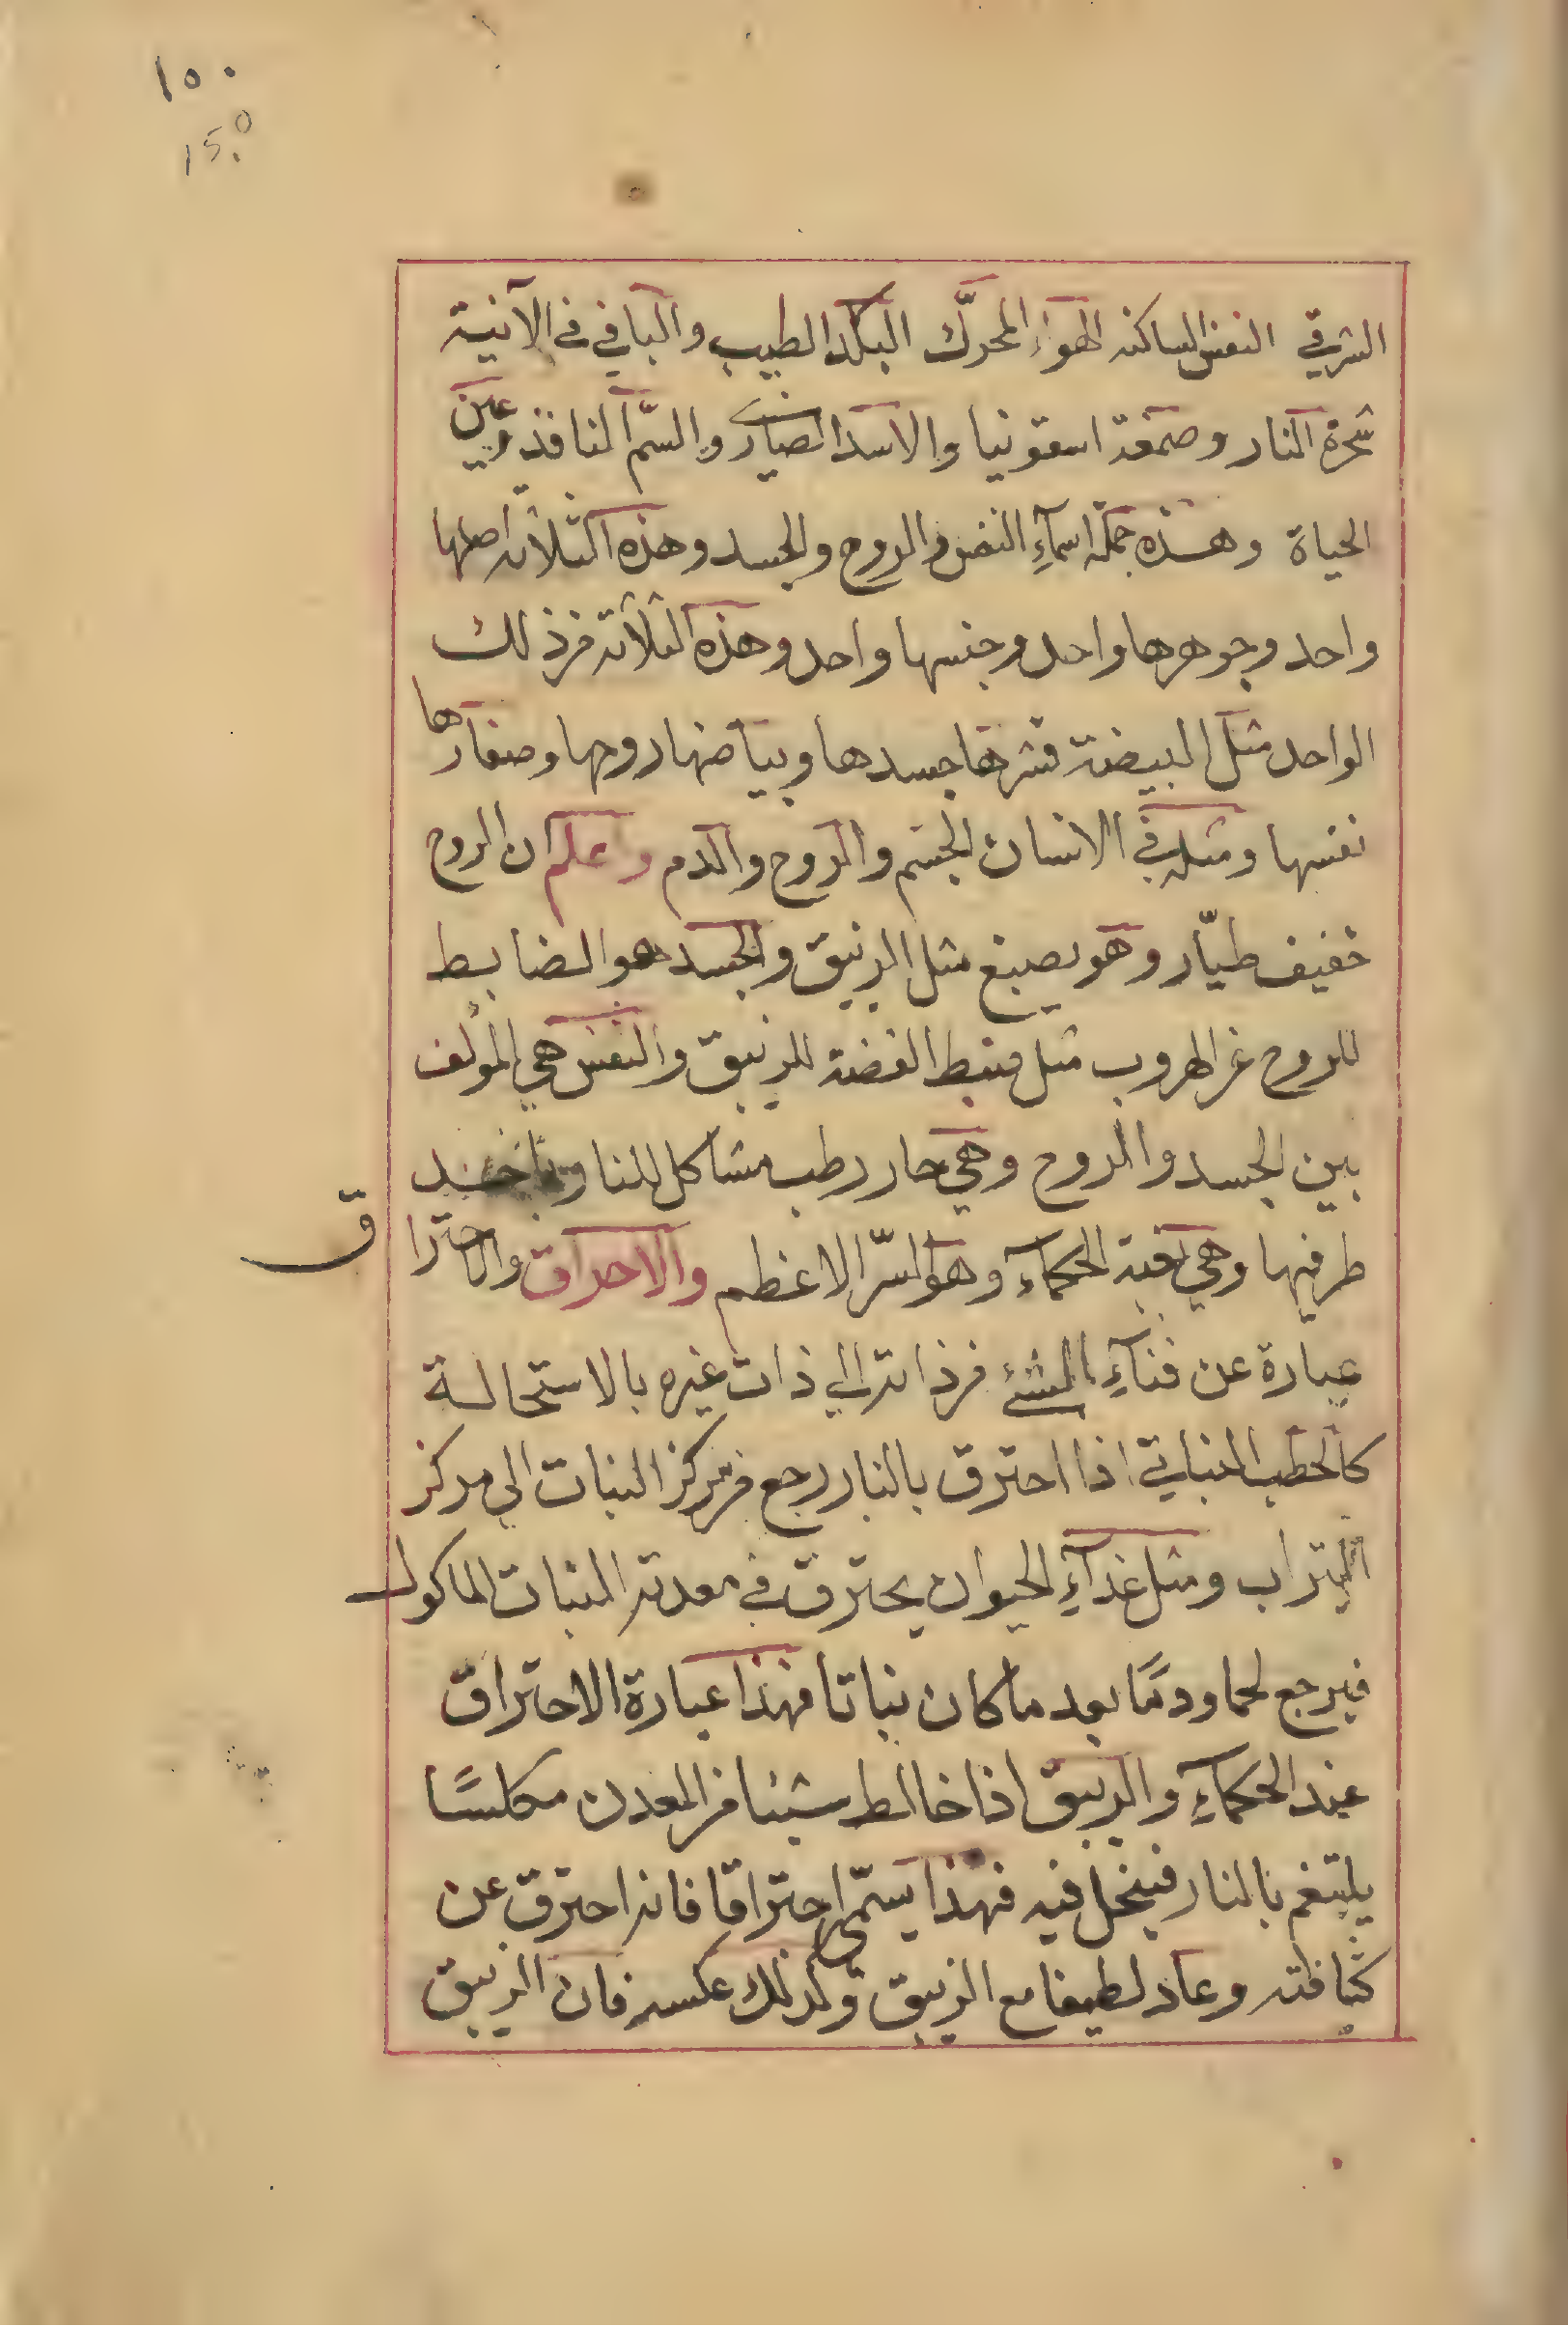 ١٥٠
١٥٠
الشرقي النفس الساكنه الهواء المحرك البلد الطيب والباقي في الآنية
شجرة النار وصمغة اسقونيا والاسد الضاري والسّم النافذ وعين
الحياة وهذه جملة اسمآءِ النفس والروح والجسد وهذه الثلاثه اصلها
واحد وجوهرها واحد وجنسها واحد وهذه الثلاثه من ذلك
الواحد مثل البيضة قشرها جسدها وبياضها روحها وصفارها
نفسها ومثله في الانسان الجسم والروح والدم واعلم ان الروح
خفيف طيّار وهو يصبغ مثل الزيبق والجسد هو الضابط
للروح عن الهروب مثل ضبط الفضة للزيبق والنفس هي المؤلف
بين الجسد والروح وهي حار رطب مشاكل للنار وتاخذ
طرفيها وهي بغية الحكمآء وهو السّر الاعظم والاحراق والاحتراق
عبارة عن فنآءِ الشئ من ذاته الي ذات غيره بالاستحالة
كالحطب النباتي اذا احترق بالنار رجع من مركز النبات الي مركز
التراب ومثل غذآءِ الحيوان يحترق في معدته النبات الماكول
فيرجع لحما ودمًا بعد ما كان نباتا فهذا عبارة الاحتراق
عند الحكمآءِ والزيبق اذا خالط شيئا من المعدن مكلسًا
يلتغم بالنار فينحل فيه فهذا يسمّى احتراقا فانه احترق عن
كثافته وعاد لطيفا مع الزيبق وكذلك عكسه فان الزيبق